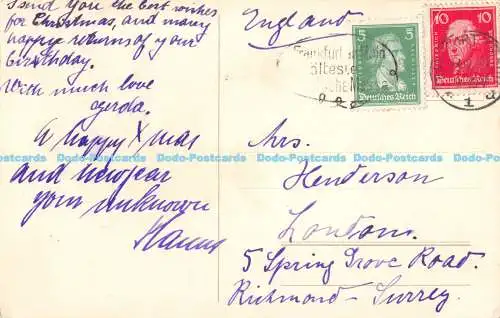 I send you the best wishes
for Christmas, and many
happy returns of your
birthday.
With much love
Gerda.
A happy Xmas
and new year
your unknown
Hanns
England
5
Deutsches Reich
10 10
Deutsches Reich
Frankfurt
1
Mrs.
Henderson
London.
5 Spring Grove Road.
Richmond - Surrey.
Dodo-Postcards Dodo-Postcards Dodo-Postcards Dodo-Postcards